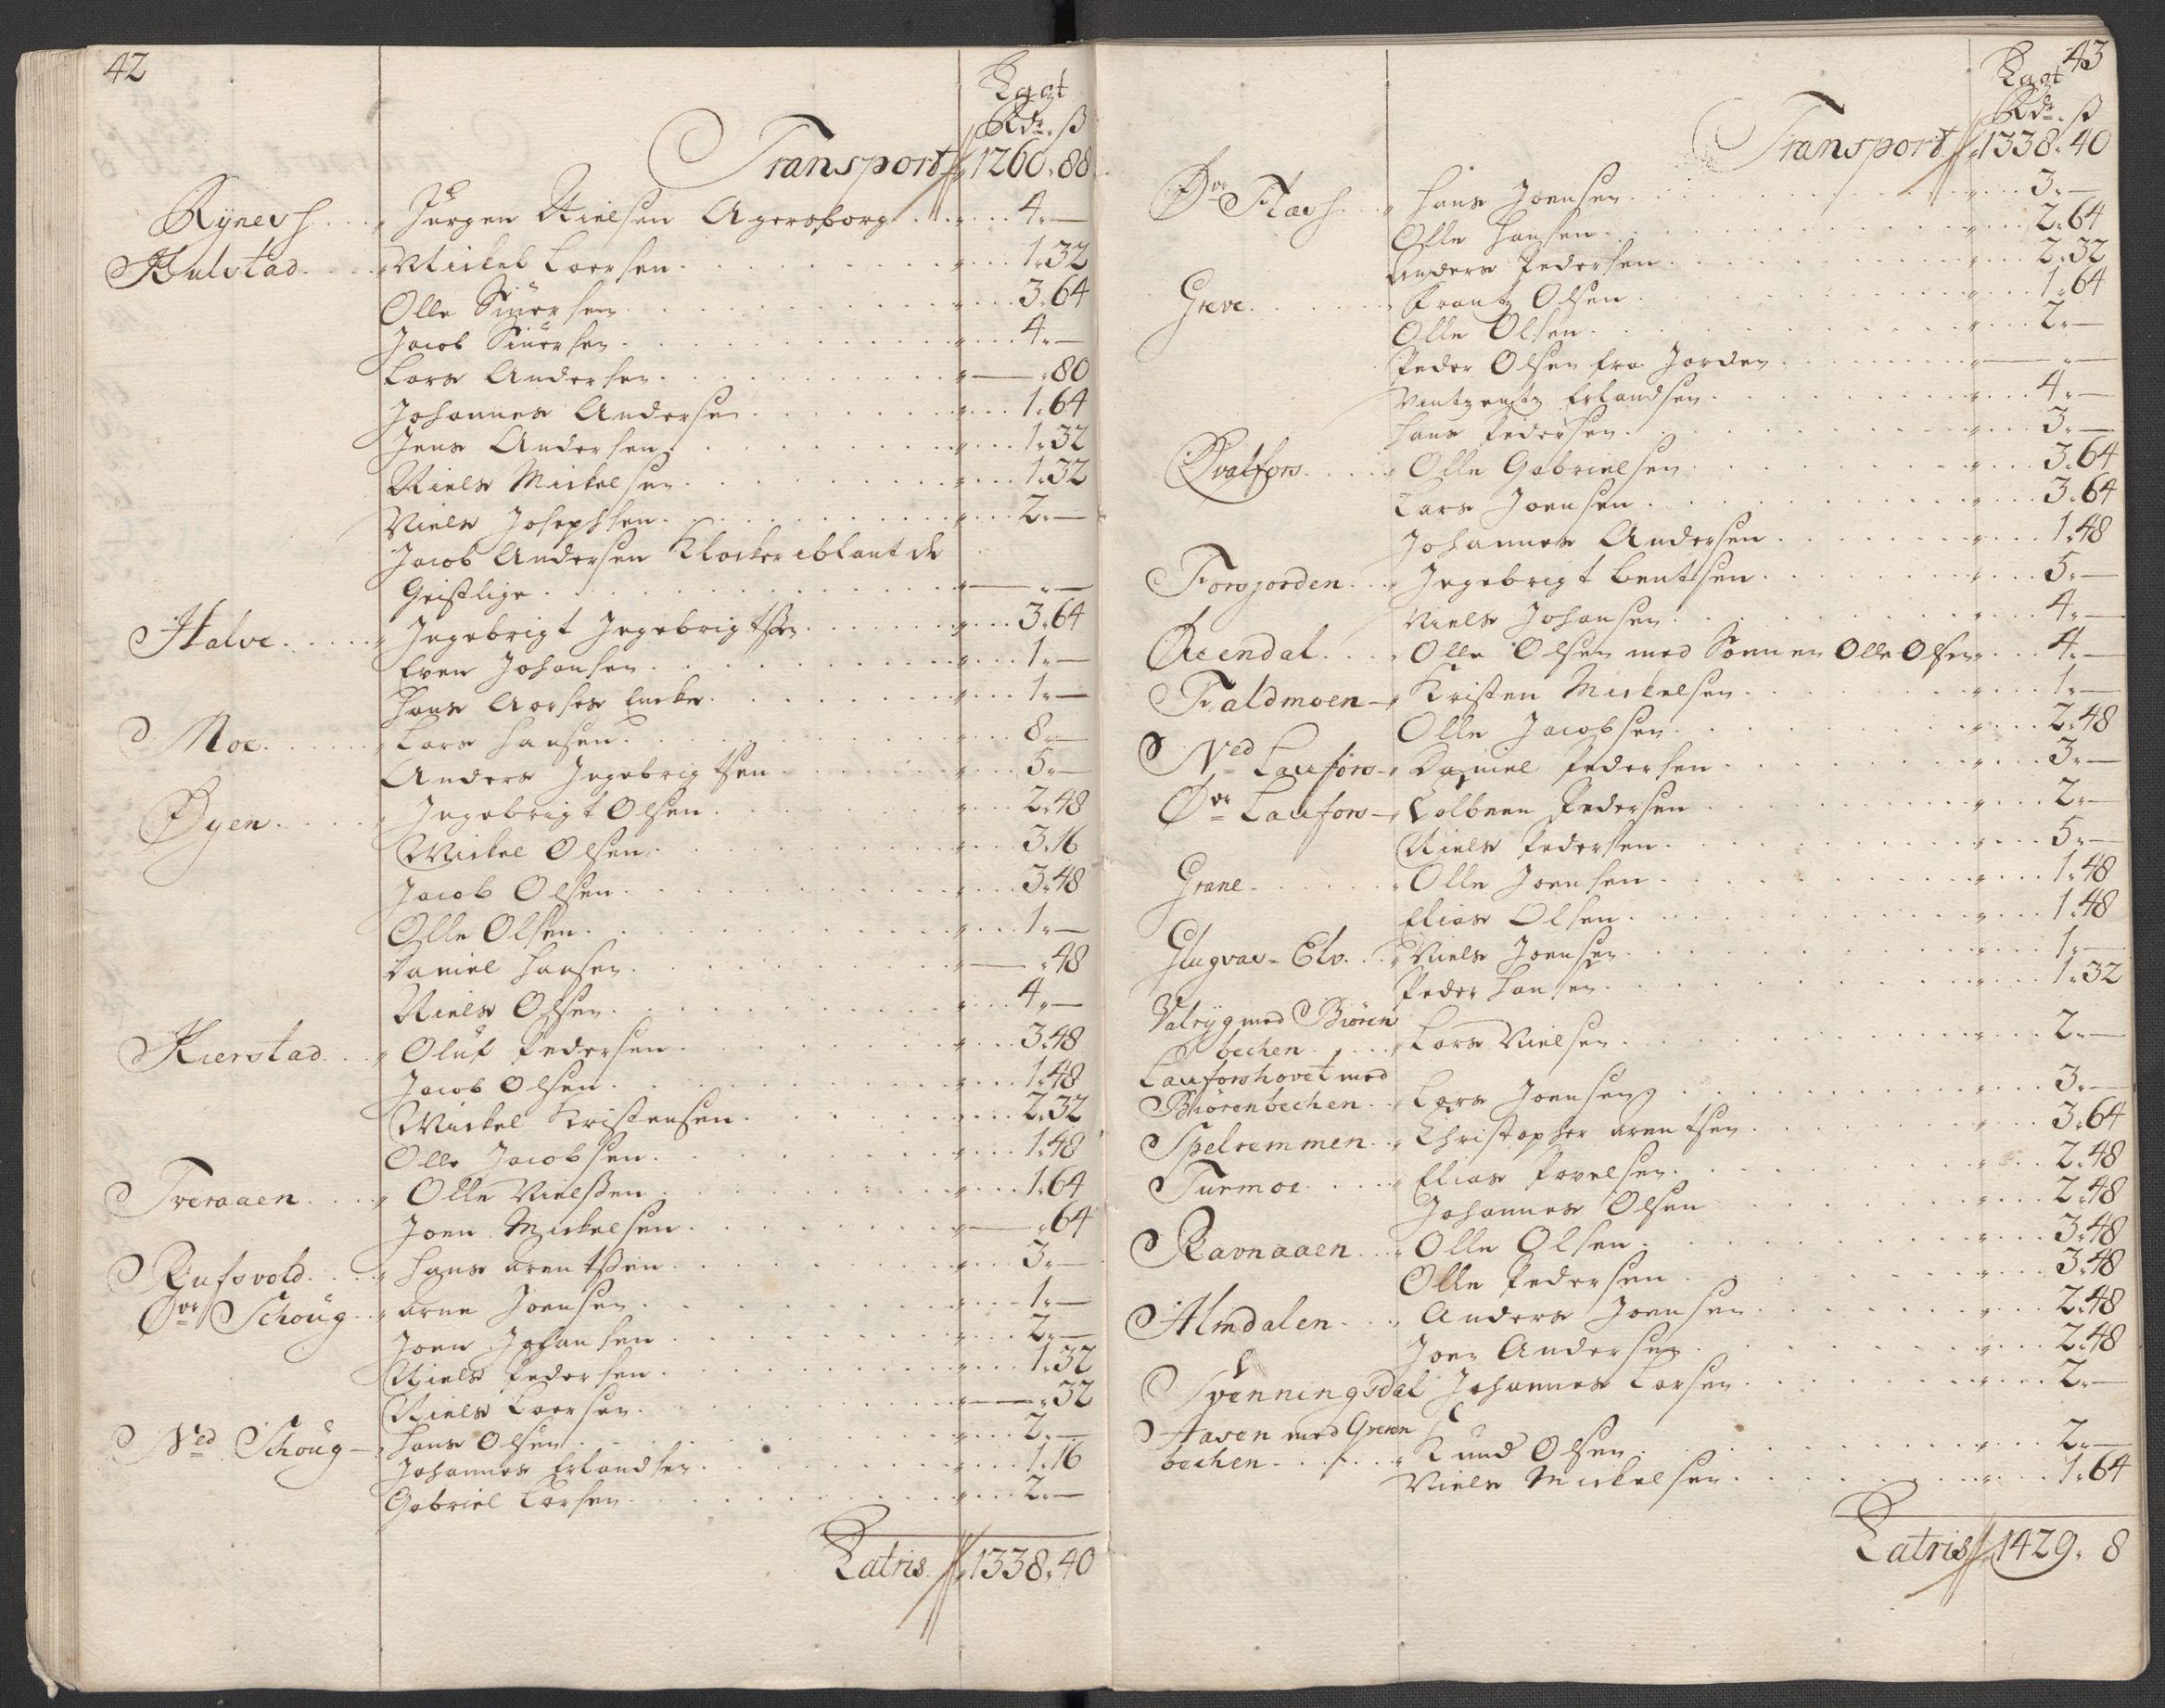 42
Lagt
Rdr. ß
Transport 1260. 88
Rynes Jürgen Nielsen Agersborg 4. —
Kulstad Mickel Larsen 1. 32
Olle Siuersen 3. 64
Jacob Siuersen 4. —
Lars Andersen — . 80
Johannes Andersen 1. 64
Jens Andersen 1. 32
Niels Mickelsen 1. 32
Niels Josephsen 2. —
Jacob Andersen Klocker iblant de
Geistlige — . —
Halve Ingebrigt Ingebrigtssen 3. 64
Even Johansen 1. —
Hans Aarses Encke 1. —
Moe Lars Hansen 8. —
Anders Ingebrigtsen 5. —
Øyen Ingebrigt Olsen 2. 48
Mickel Olsen 3. 16
Jacob Olsen 3. 48
Olle Olsen 1. —
Daniel Hansen — . 48
Niels Olsen 4. —
Kierstad Oluf Pedersen 3. 48
Jacob Olsen 1. 48
Mickel Kristensen 2. 32
Olle Jacobsen 1. 48
Tveraaen Olle Nielssen 1. 64
Joen Mickelsen — . 64
Hans Arentssen 3. —
Ovr Schoug Arne Joensen 1. —
Joen Johansen 2. —
Niels Pedersen 1. 32
Niels Larsen — . 32
Ned Schoug Hans Olsen 2. —
Johannes Erlandsen 1. 16
Gabriel Larsen 2. —
Latris 1338. 40
43
Lagt
Rdr. ß
Transport 1338. 40
Øvr Hans Joensen 3. —
Olle Hansen 2. 64
Anders Pedersen 2. 32
Greve Frantz Olsen 1. 64
Olle Olsen 2. —
Peder Olsen fra Jorden — . —
Vintzentz Erlandsen 4. —
Hans Pedersen 3. —
Qvalfors Olle Gabrielsen 3. 64
Lars Joensen 3. 64
Johannes Andersen 1. 48
Forsjorden Ingebrigt Bentsen 5. —
Niels Johansen 4. —
Olle Olsen med Sønnen Olle Olsen 4. —
Faldmoen Kristen Mickelsen 1. —
Olle Jacobsen 2. 48
Ned Laufors Daniel Pedersen 3. —
Øvr Laufors Colbeen Pedersen 2. —
Niels Pedersen 5. —
Grane Olle Joensen 1. 48
Elias Olsen 1. 48
Glugvas-Elv Niels Joensen 1. —
Peder Hansen 1. 32
Valryg med Biøren
bechen Lars Nielsen 2. —
Lauforshovet med
Biørenbechen Lars Joensen 3. —
Spelremmen Christopher Arentsen 3. 64
Turmoe Elias Povelsen 2. 48
Johannes Olsen 2. 48
Ravnaaen Olle Olsen 3. 48
Olle Pedersen 3. 48
Almdalen Anders Joensen 2. 48
Joen Andersen 2. 48
Svenningsdal Johannes Larsen 2. —
Aasen med Grenen
bechen Knud Olsen 2. —
Niels Mickelsen 1. 64
Latris 1429. 8